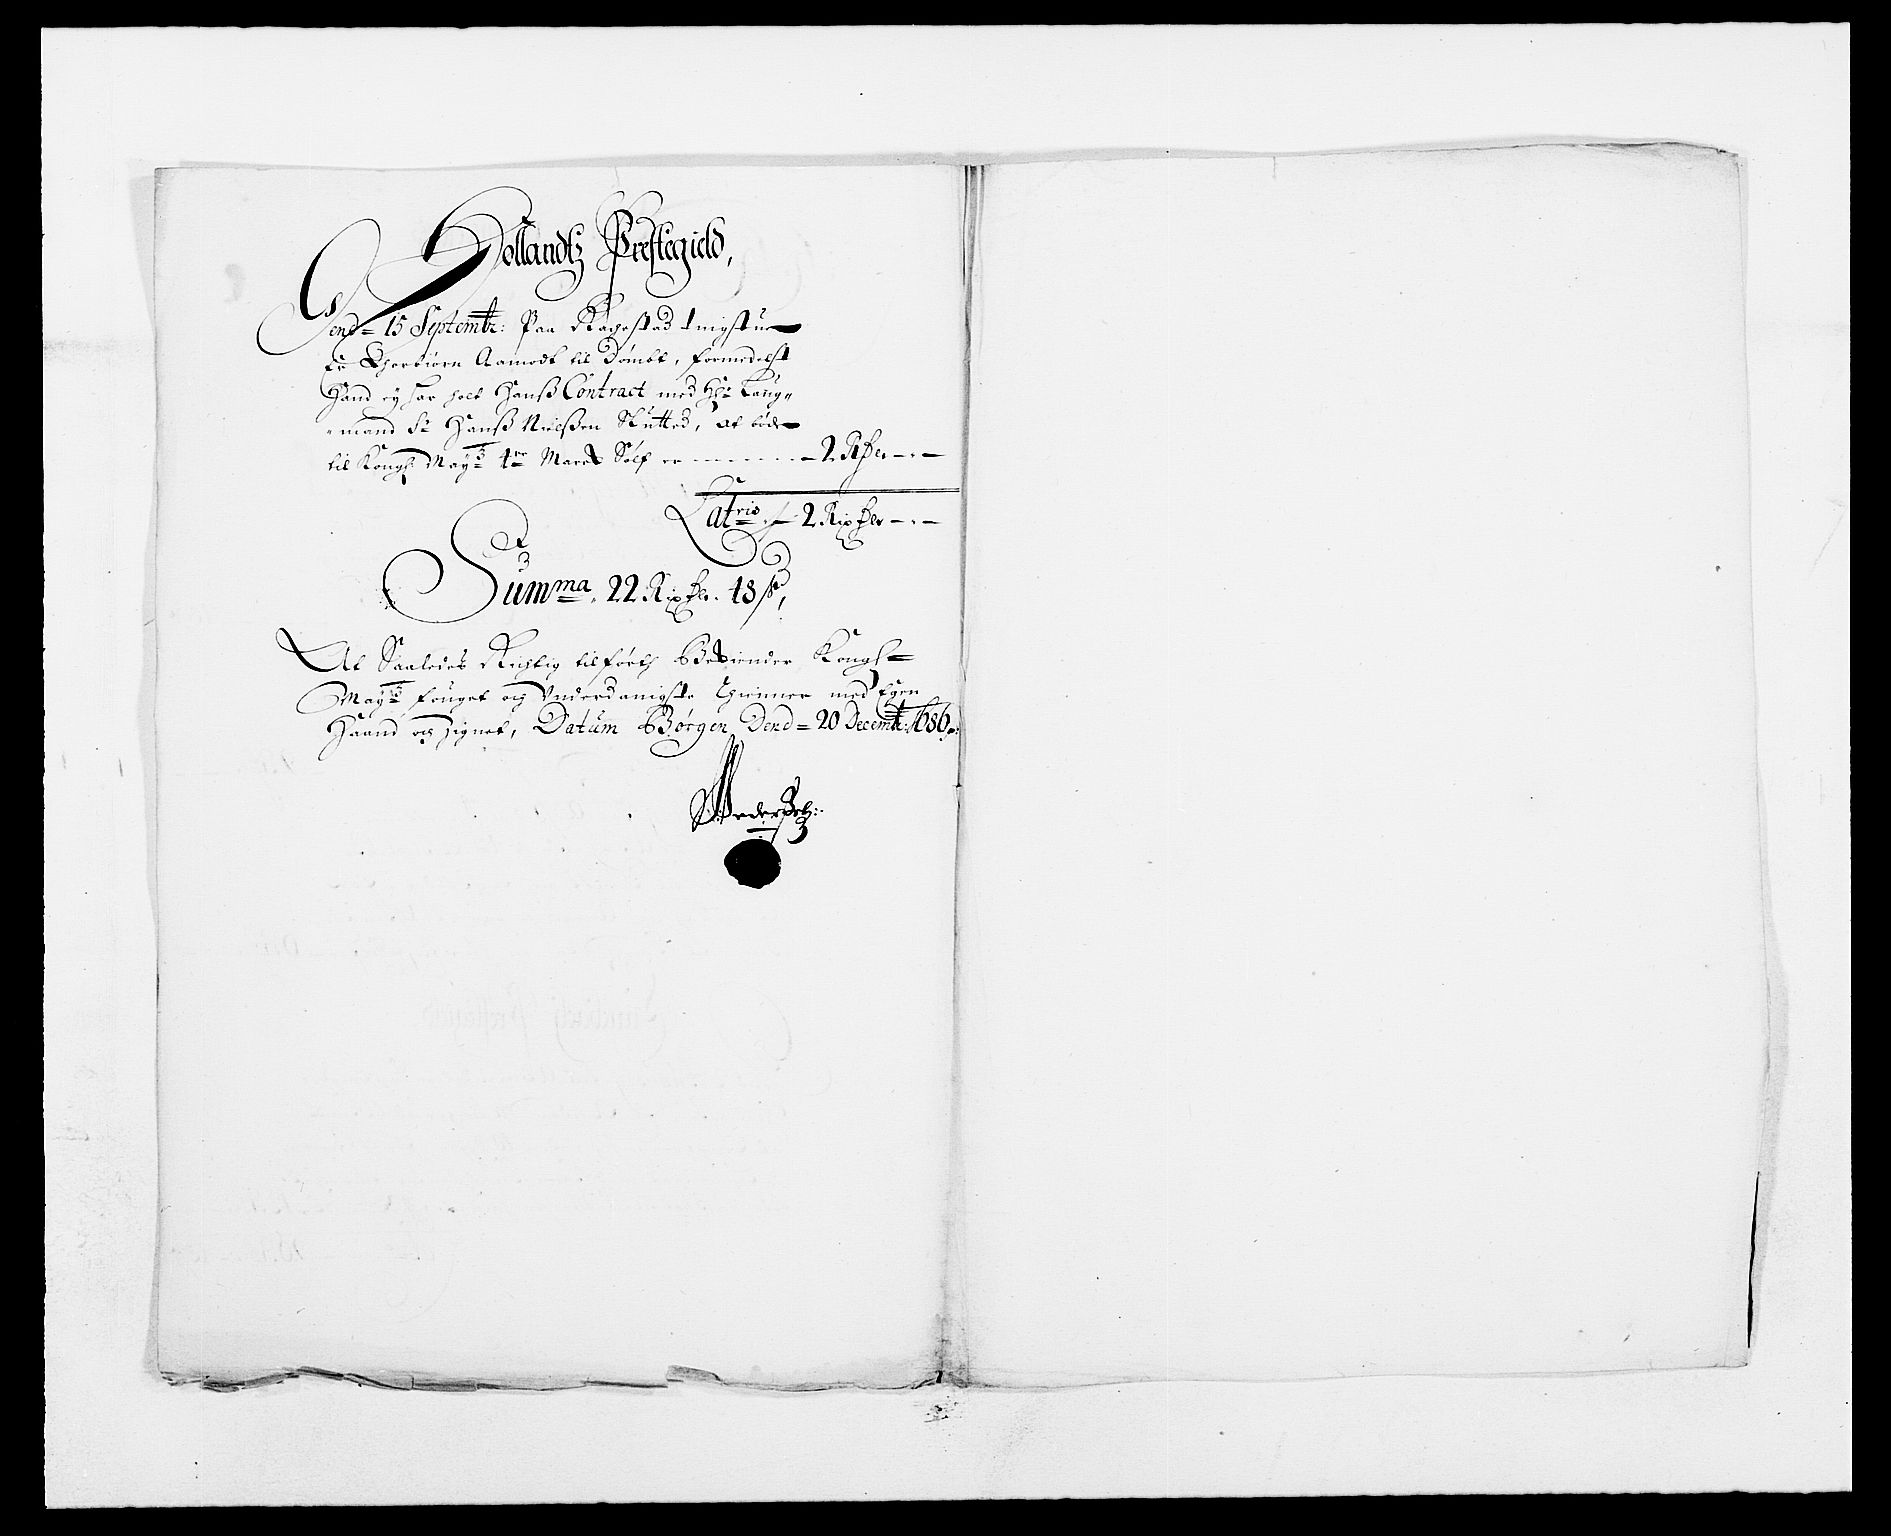 Hollandtz Prestegield,
Dend= 15 Septembr: Paa Rogestad tingstue
Er Thorbiørn Aamodt til Dømbt, formedelst
Hand ey har holt Hanß Contract med Hr: Laug-
-mand Sr Hanß Nielßen Stutted, at bøde
til Kongl: May:ts 4re March Sølf er - - - - - 2 Rdr - . -
Lat:ris 2 Rixdr - . -
Summa. 22 Rixdlr. 48 ß,
At Saaledes Richtig tilføeth Bekiender Kongl:
May:ts fouget og Underdanigste Thienner med Egen
Haand og Signet, Datum Børgen Dend= 20 Decembr: 1686